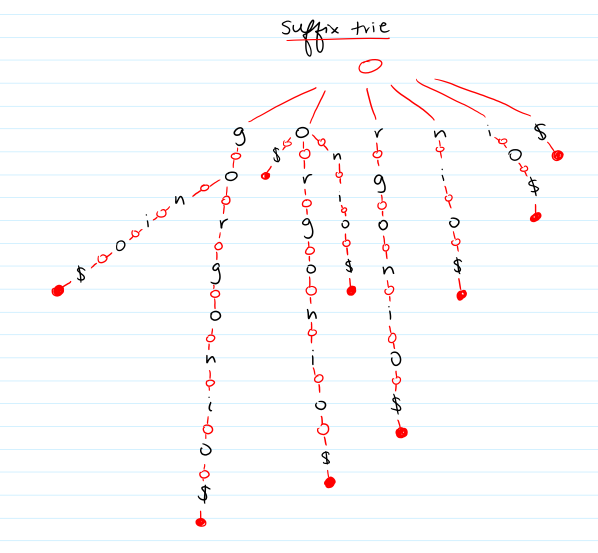 suffix trie
g o r g o n i o $
n i o $
o r g o n i o $
$
n i o $
r g o n i o $
n i o $
i o $
$